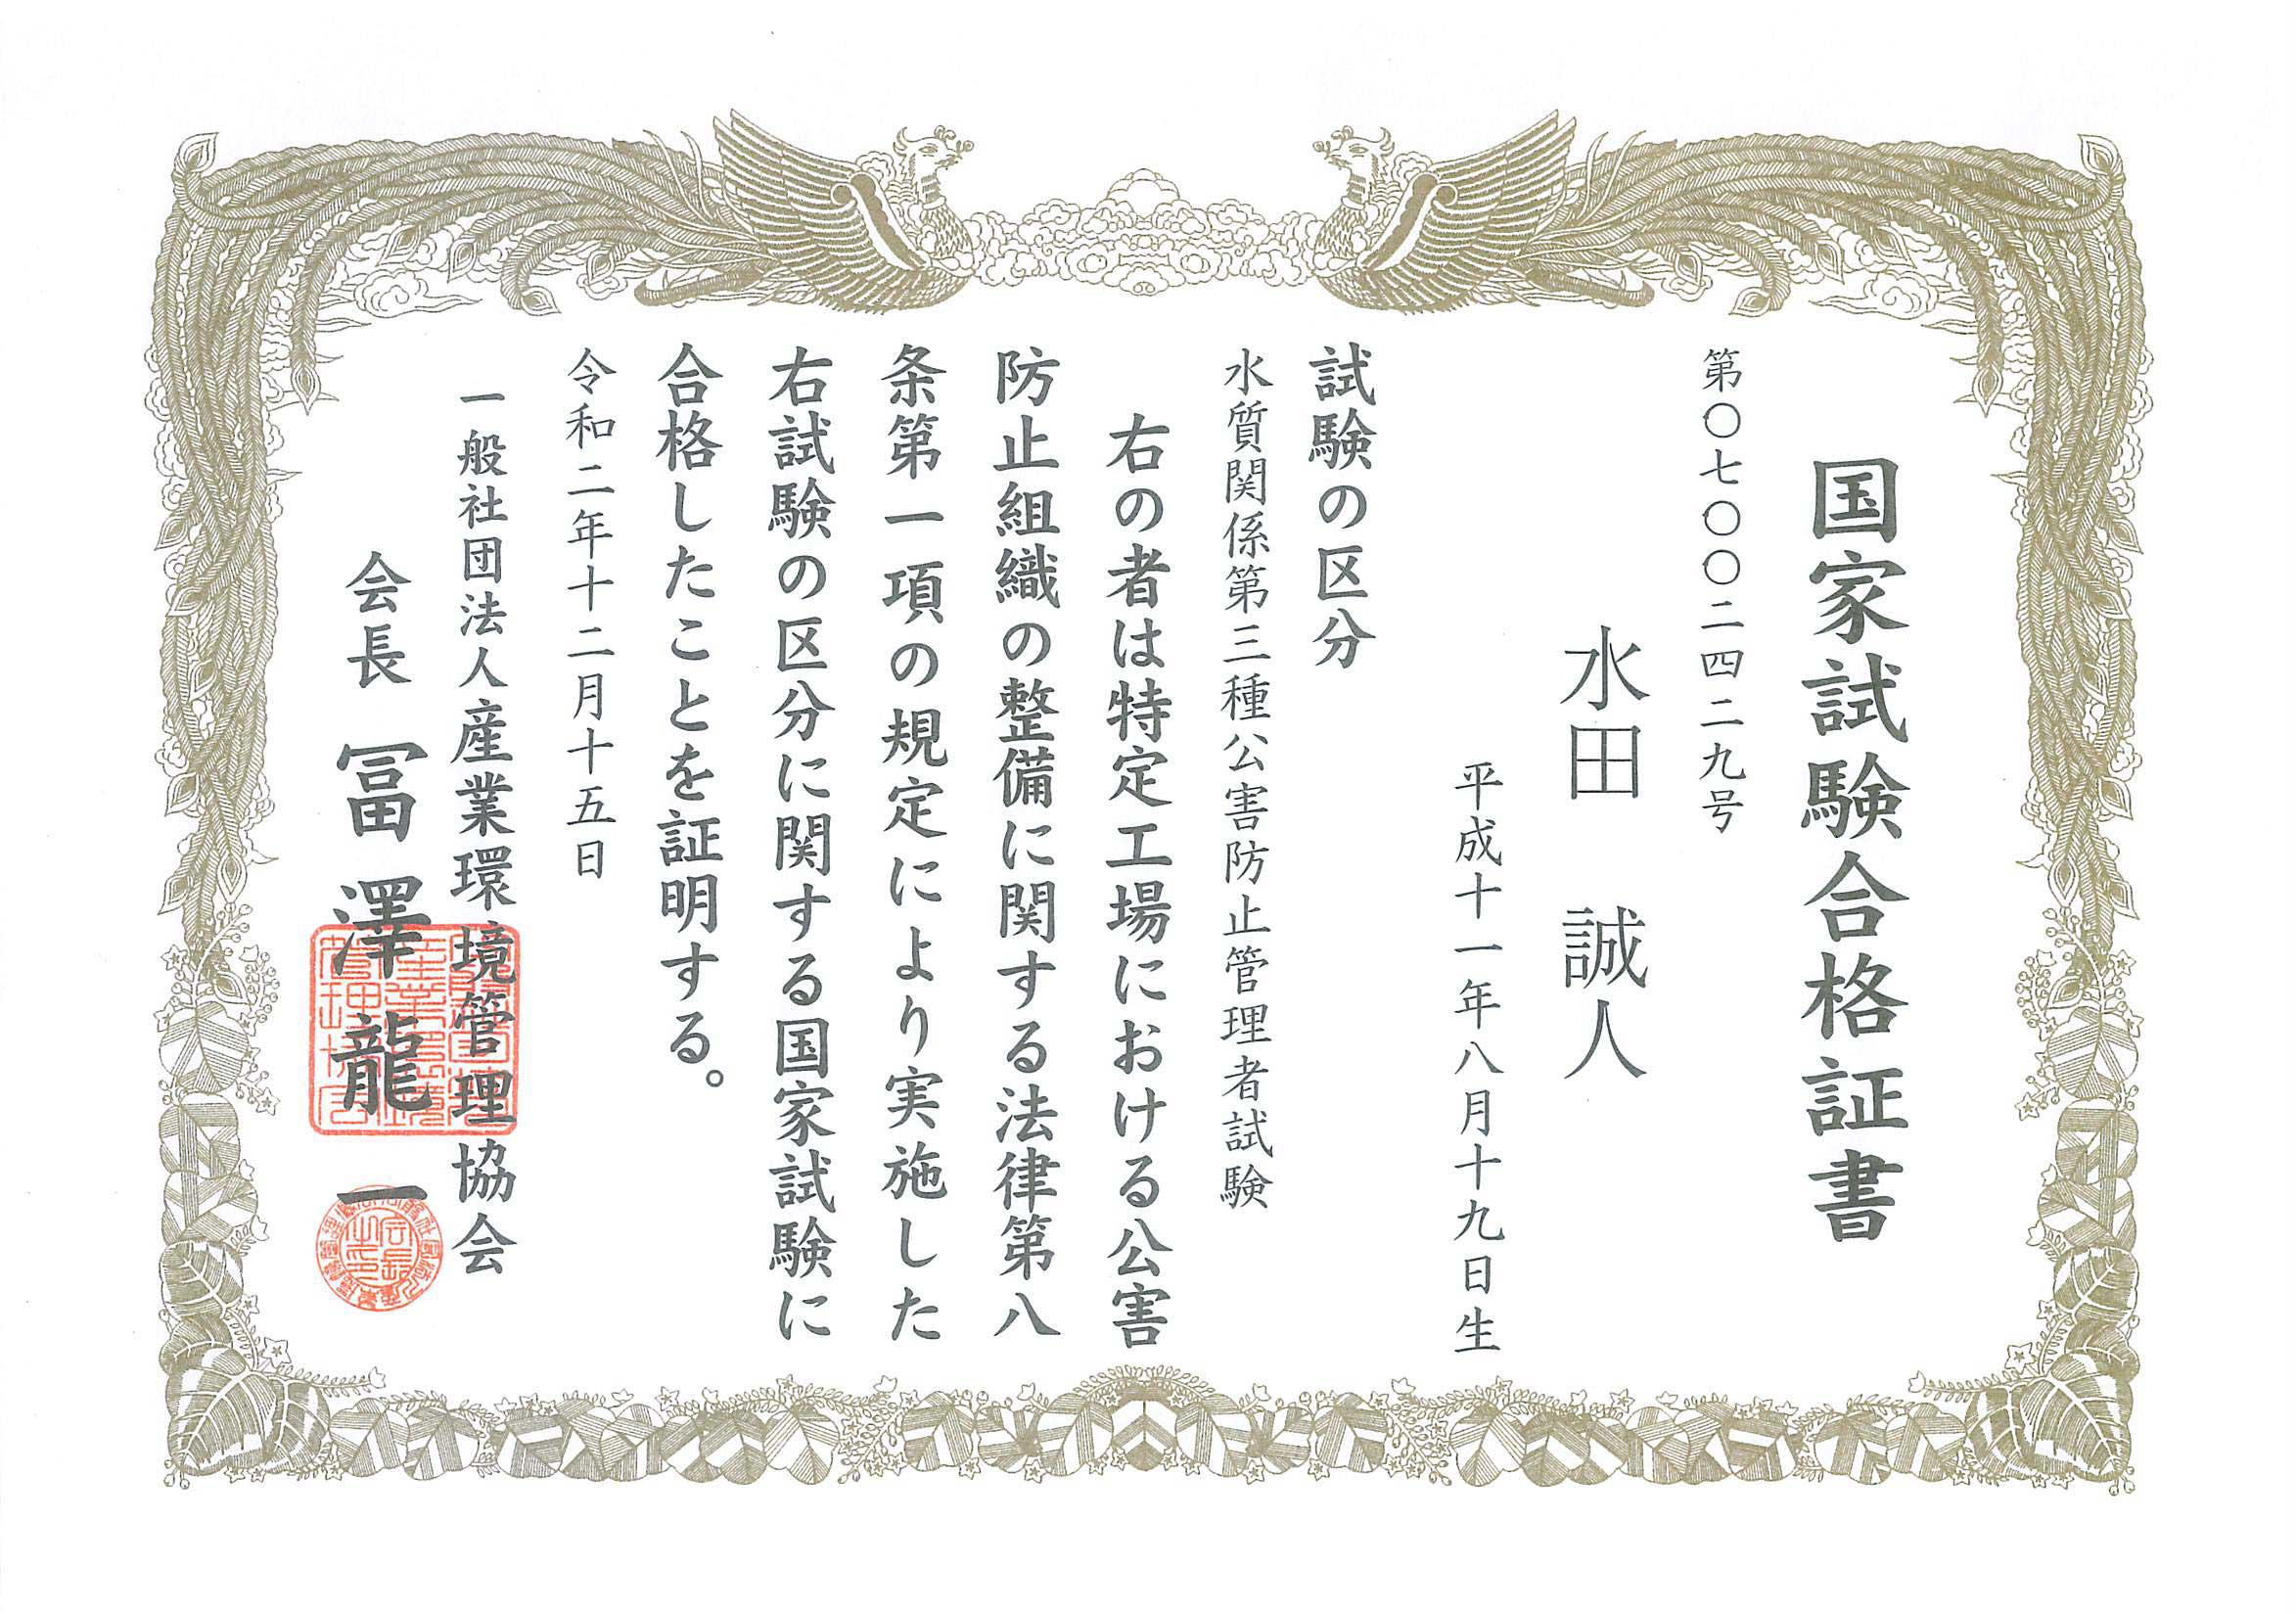 国家試験合格証書
第〇七〇〇〇二四二九号
水田 誠人
平成十一年八月十九日生
試験の区分
水質関係第三種公害防止管理者試験
右の者は特定工場における公害
防止組織の整備に関する法律第八
条第一項の規定により実施した
右試験の区分に関する国家試験に
合格したことを証明する。
令和二年十二月十五日
一般社団法人産業環境管理協会
会長 冨澤龍一